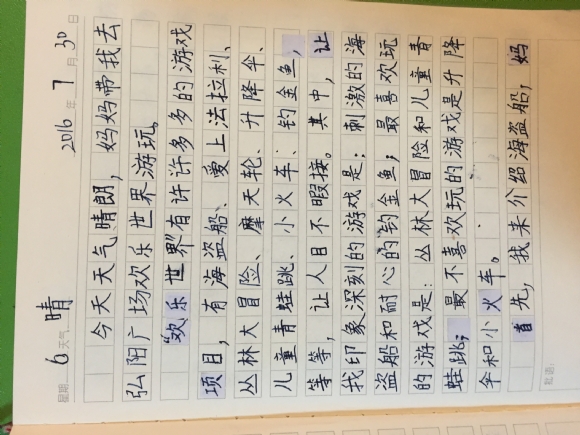 星期 6 天气 晴 2016 年 7 月 30 日
今天天气晴朗，妈妈带我去
弘阳广场欢乐世界游玩。
“欢乐世界”有许许多多的游戏
项目，有海盗船、爱上法拉利、
丛林大冒险、摩天轮、升降伞、
儿童青蛙跳、小火车、钓金鱼，
等等，让人目不暇接。其中，让
我印象深刻的游戏是：刺激的海
盗船和耐心的钓金鱼；最喜欢玩
的游戏是：丛林大冒险和儿童青
蛙跳；最不喜欢玩的游戏是升降
伞和小火车。
首先，我来介绍海盗船，妈
批语：